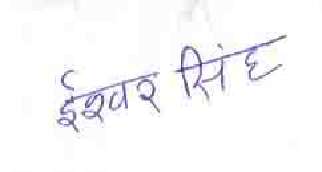 ईश्वर सिंह